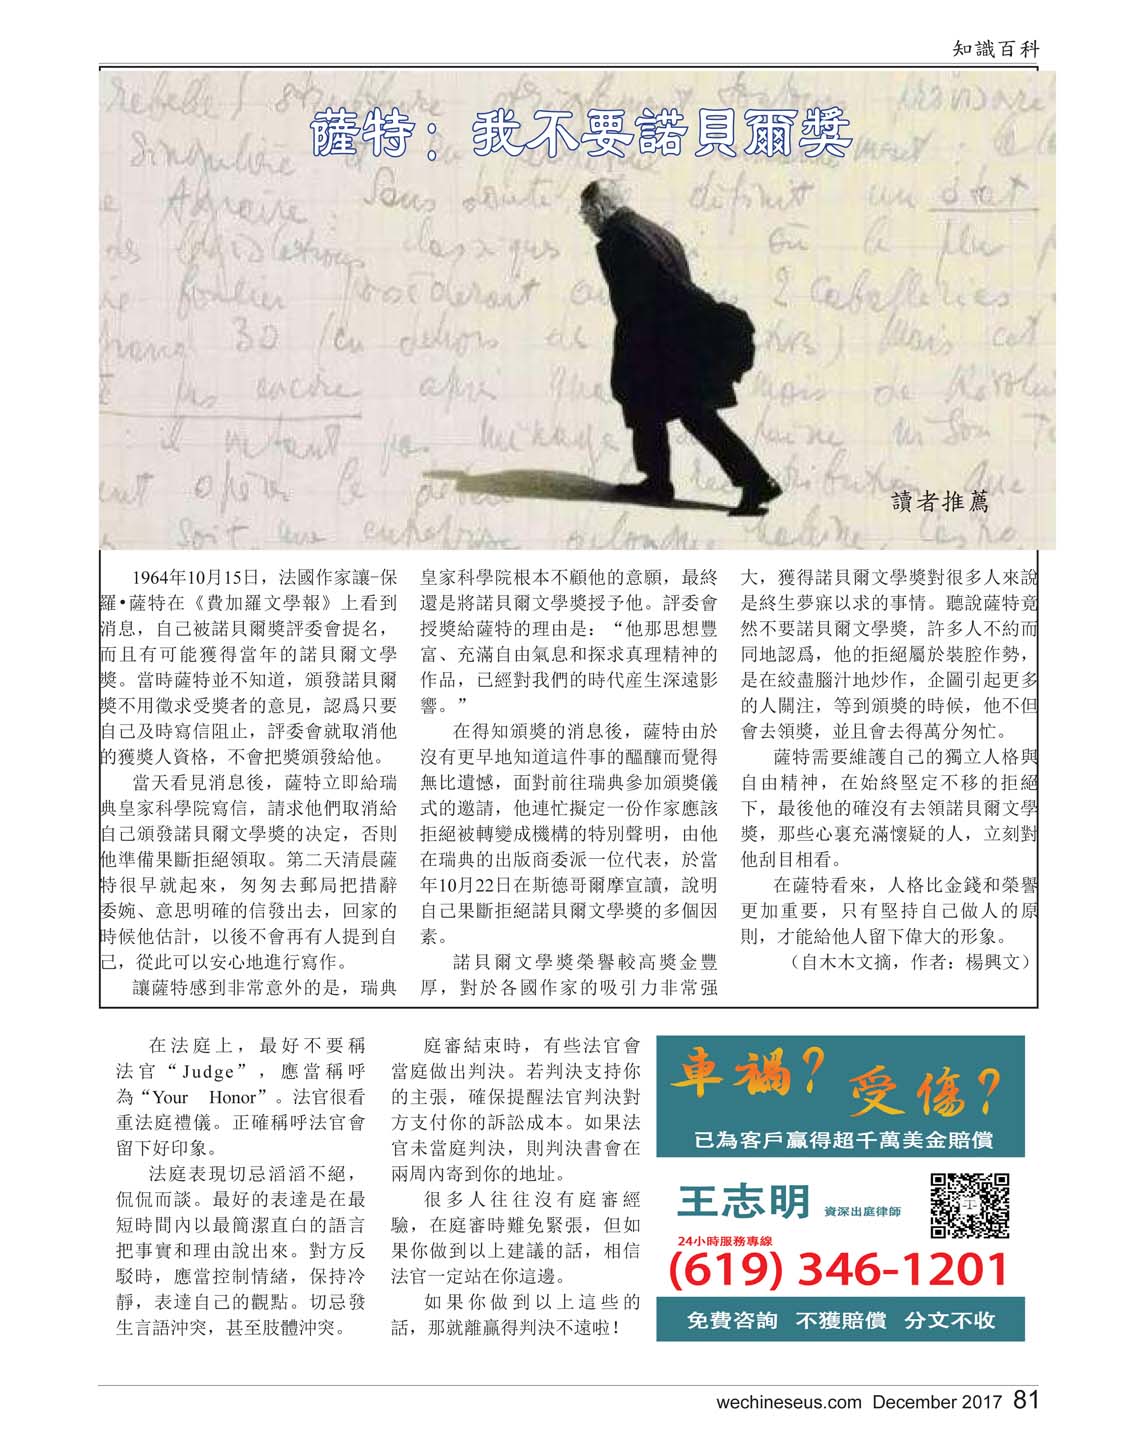 知識百科
薩特：我不要諾貝爾獎
讀者推薦
1964年10月15日，法國作家讓-保
羅•薩特在《費加羅文學報》上看到
消息，自己被諾貝爾獎評委會提名，
而且有可能獲得當年的諾貝爾文學
獎。當時薩特並不知道，頒發諾貝爾
獎不用徵求受獎者的意見，認爲只要
自己及時寫信阻止，評委會就取消他
的獲獎人資格，不會把獎頒發給他。
當天看見消息後，薩特立即給瑞
典皇家科學院寫信，請求他們取消給
自己頒發諾貝爾文學獎的決定，否則
他準備果斷拒絕領取。第二天清晨薩
特很早就起來，匆匆去郵局把措辭
委婉、意思明確的信發出去，回家的
時候他估計，以後不會再有人提到自
己，從此可以安心地進行寫作。
讓薩特感到非常意外的是，瑞典
皇家科學院根本不顧他的意願，最終
還是將諾貝爾文學獎授予他。評委會
授獎給薩特的理由是：“他那思想豐
富、充滿自由氣息和探求真理精神的
作品，已經對我們的時代産生深遠影
響。”
在得知頒獎的消息後，薩特由於
沒有更早地知道這件事的醞釀而覺得
無比遺憾，面對前往瑞典參加頒獎儀
式的邀請，他連忙擬定一份作家應該
拒絕被轉變成機構的特別聲明，由他
在瑞典的出版商委派一位代表，於當
年10月22日在斯德哥爾摩宣讀，說明
自己果斷拒絕諾貝爾文學獎的多個因
素。
諾貝爾文學獎榮譽較高獎金豐
厚，對於各國作家的吸引力非常强
大，獲得諾貝爾文學獎對很多人來說
是終生夢寐以求的事情。聽說薩特竟
然不要諾貝爾文學獎，許多人不約而
同地認爲，他的拒絕屬於裝腔作勢，
是在絞盡腦汁地炒作，企圖引起更多
的人關注，等到頒獎的時候，他不但
會去領獎，並且會去得萬分匆忙。
薩特需要維護自己的獨立人格與
自由精神，在始終堅定不移的拒絕
下，最後他的確沒有去領諾貝爾文學
獎，那些心裏充滿懷疑的人，立刻對
他刮目相看。
在薩特看來，人格比金錢和榮譽
更加重要，只有堅持自己做人的原
則，才能給他人留下偉大的形象。
（自木木文摘，作者：楊興文）
在法庭上，最好不要稱
法官“Judge”，應當稱呼
為“Your Honor”。法官很看
重法庭禮儀。正確稱呼法官會
留下好印象。
法庭表現切忌滔滔不絕，
侃侃而談。最好的表達是在最
短時間內以最簡潔直白的語言
把事實和理由說出來。對方反
駁時，應當控制情緒，保持冷
靜，表達自己的觀點。切忌發
生言語沖突，甚至肢體沖突。
庭審結束時，有些法官會
當庭做出判決。若判決支持你
的主張，確保提醒法官判決對
方支付你的訴訟成本。如果法
官未當庭判決，則判決書會在
兩周內寄到你的地址。
很多人往往沒有庭審經
驗，在庭審時難免緊張，但如
果你做到以上建議的話，相信
法官一定站在你這邊。
如果你做到以上這些的
話，那就離贏得判決不遠啦！
車禍？
受傷？
已為客戶贏得超千萬美金賠償
王志明 資深出庭律師
24小時服務專線
(619) 346-1201
免費咨詢 不獲賠償 分文不收
wechineseus.com December 2017 81